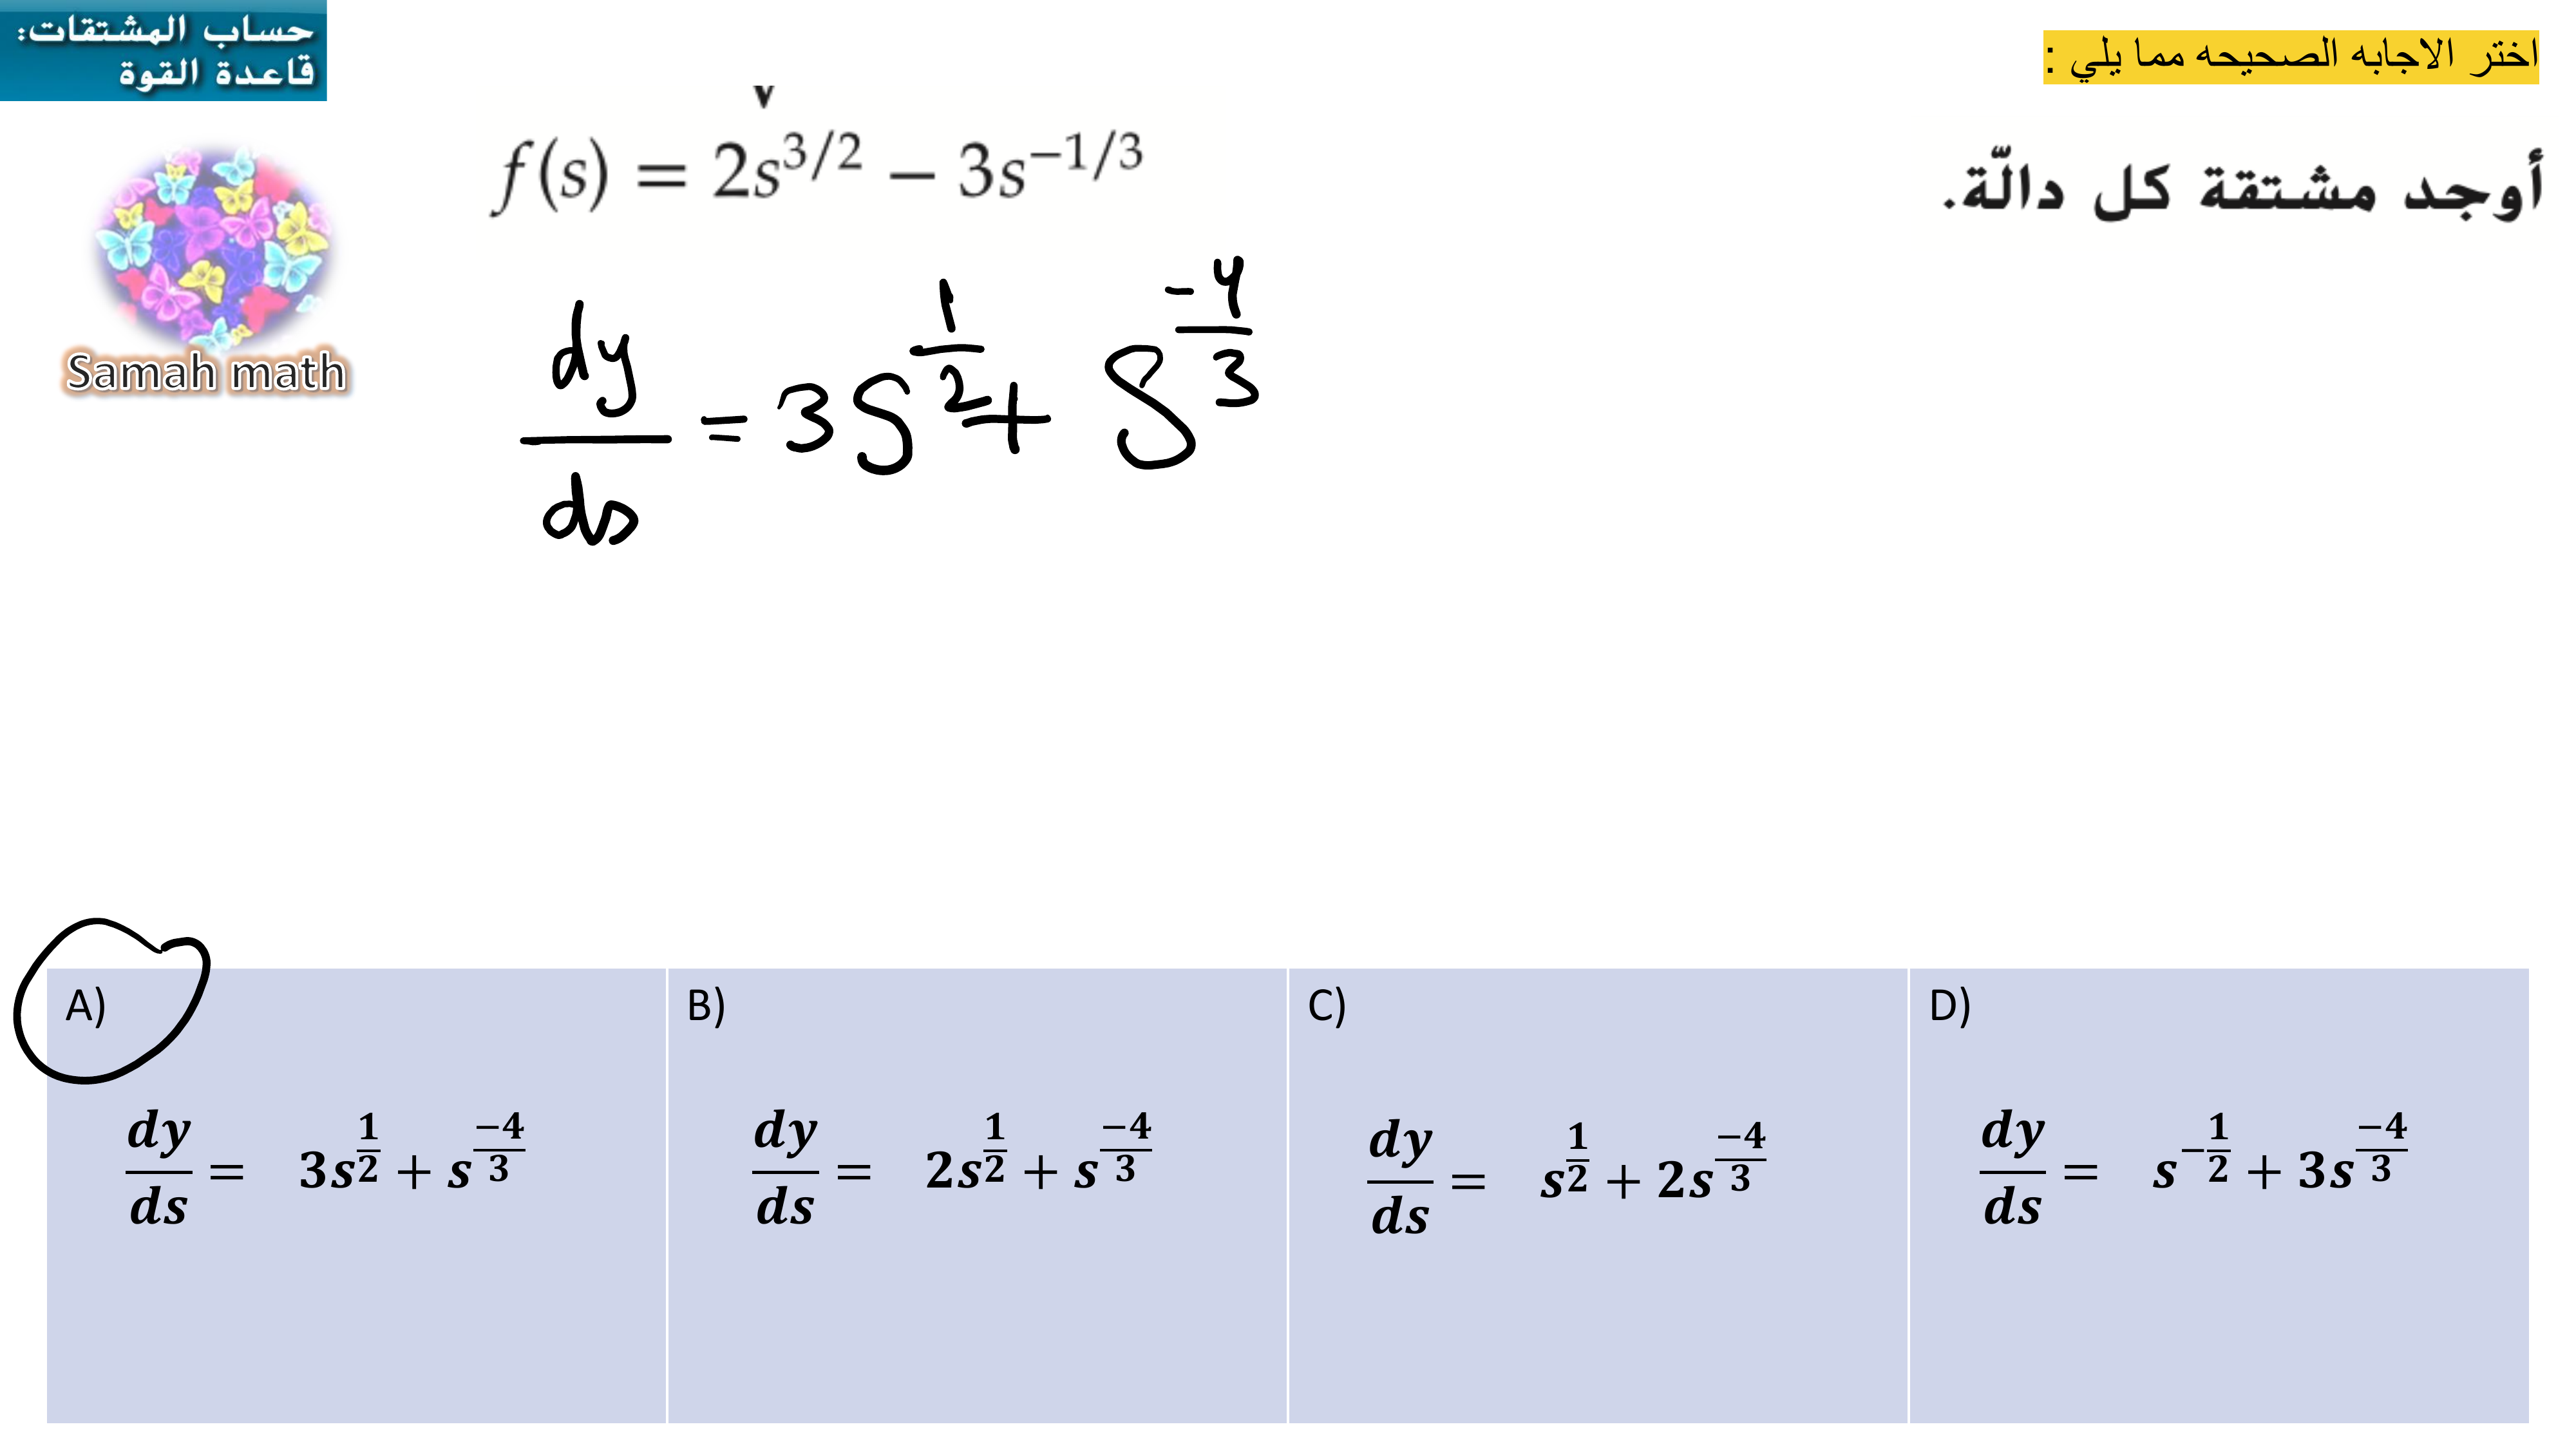 حساب المشتقات:
قاعدة القوة
اختر الاجابه الصحيحه مما يلي :
أوجد مشتقة كل دالّة.
f(s) = 2s^{3/2} − 3s^{−1/3}
Samah math
dy/ds = 3s^{1/2} + s^{-4/3}
A)
dy/ds = 3s^{1/2} + s^{−4/3}
B)
dy/ds = 2s^{1/2} + s^{−4/3}
C)
dy/ds = s^{1/2} + 2s^{−4/3}
D)
dy/ds = s^{−1/2} + 3s^{−4/3}